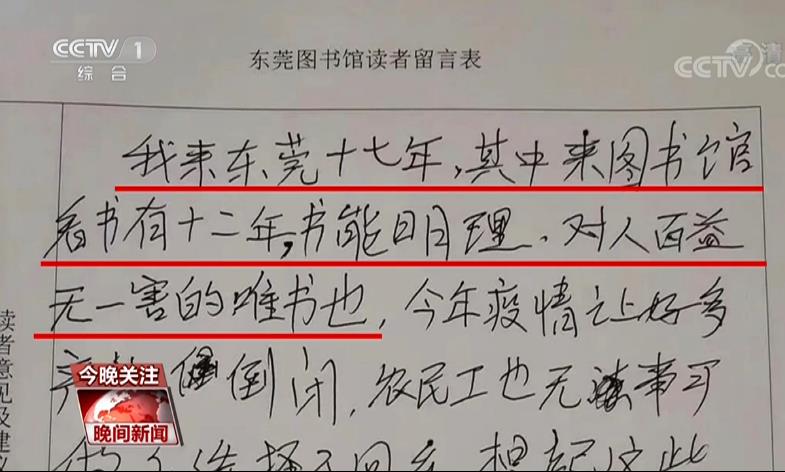 CCTV 1
综合
高清
CCTV CC
东莞图书馆读者留言表
我来东莞十七年，其中来图书馆
看书有十二年，书能明理、对人百益
无一害的唯书也，今年疫情让好多
产 倒闭，农民工也无法事可
选择了回乡 想起这些
读者意见及建议
今晚关注
晚间新闻